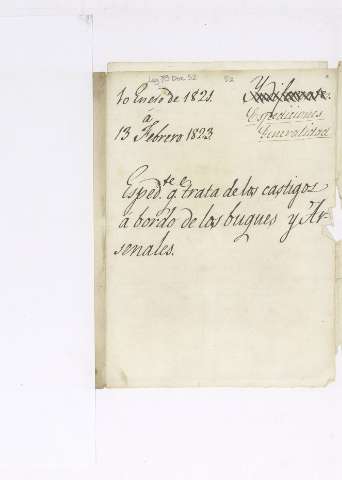 Leg 78 Doc. 52
52
10 Enero de 1821.
á
13 Febrero 1823.
Espediciones
Generalidad
Esped.te q.e trata de los castigos
a bordo de los buques y Ar-
senales.